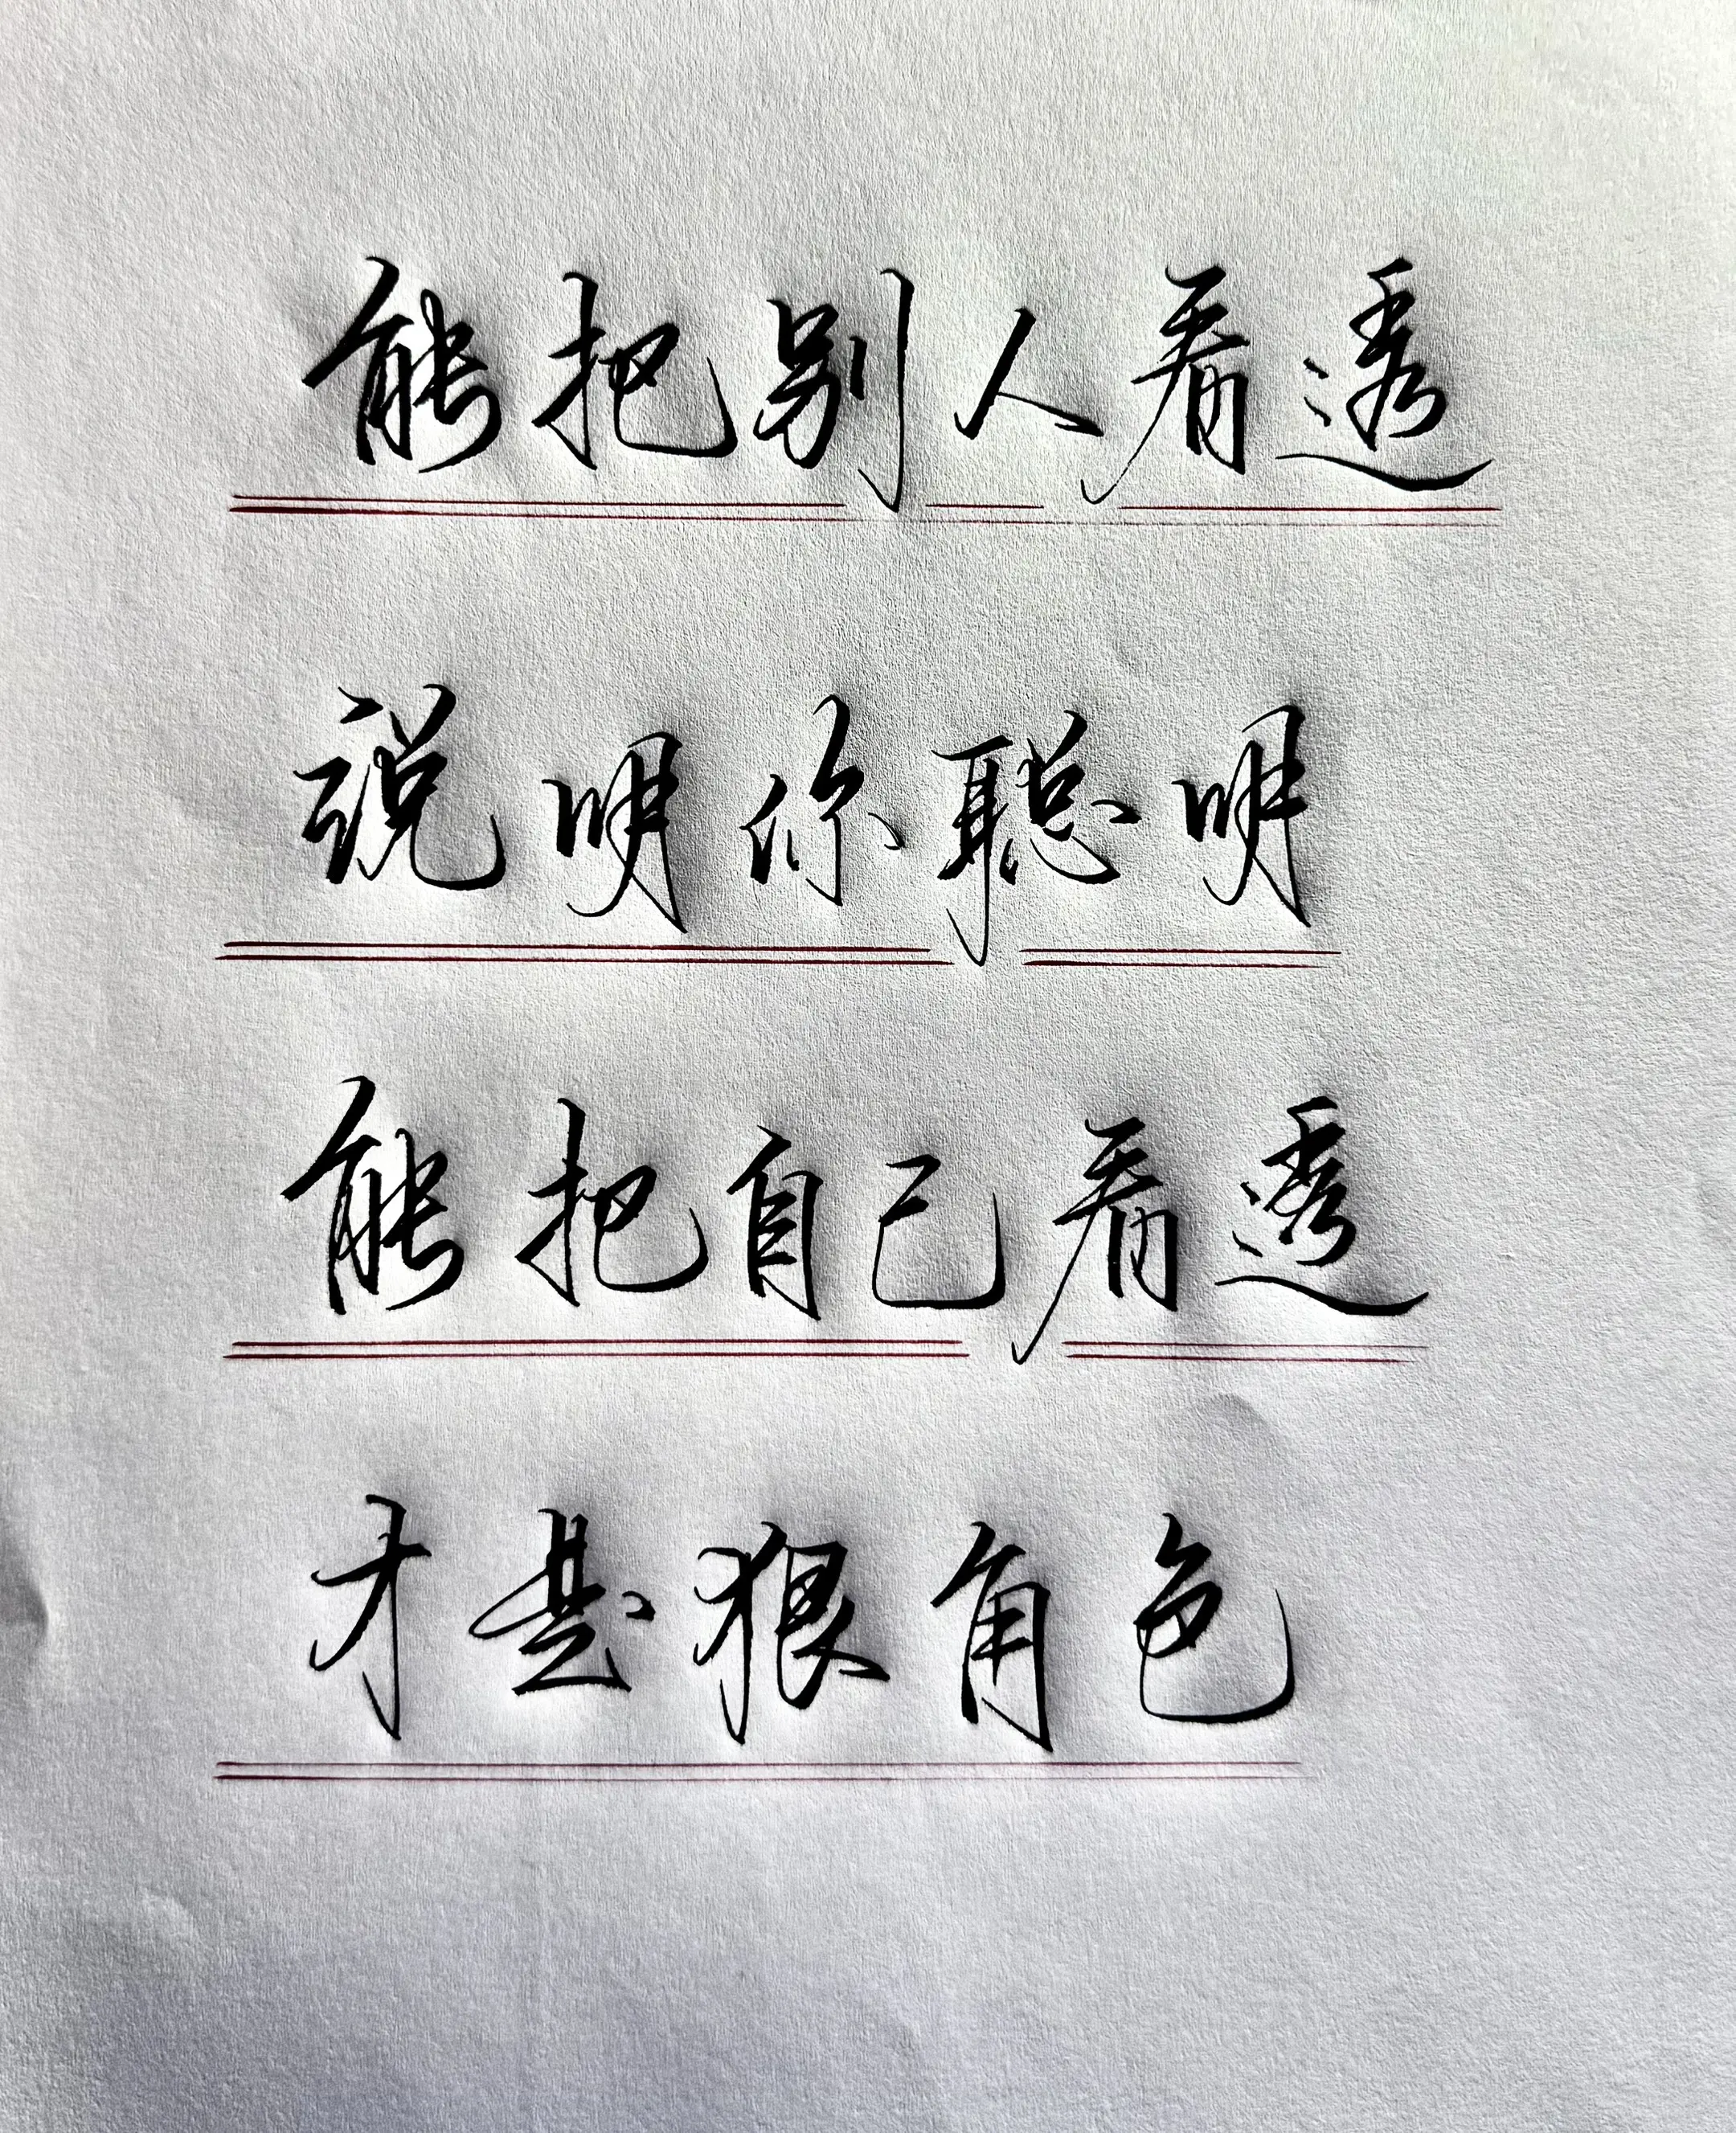 能把别人看透
说明你聪明
能把自己看透
才是狠角色